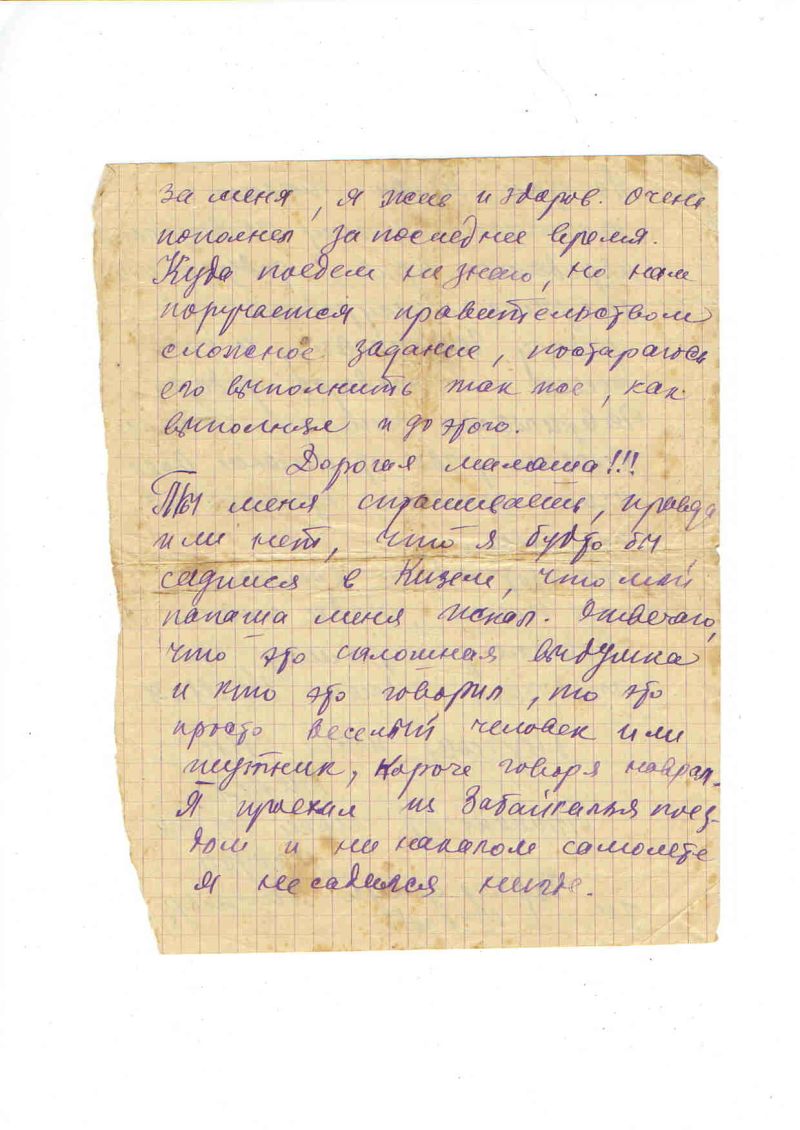 за меня, я жив и здоров. Очень
пополнел за последнее время.
Куда поедем не знаю, но нам
поручается правительством
сложное задание, постараюсь
его выполнить так же, как
выполнял и до этого.
Дорогая мамаша!!!
Ты меня спрашиваешь, правда
или нет, что я будто бы
садился в Кизеле, что мой
папаша меня искал. Отвечаю,
что это сплошная выдумка
и кто это говорил, то это
просто веселый человек или
шутник, короче говоря наврал.
Я приехал из Забайкалья поез-
дом и ни на каком самолете
я не садился нигде.